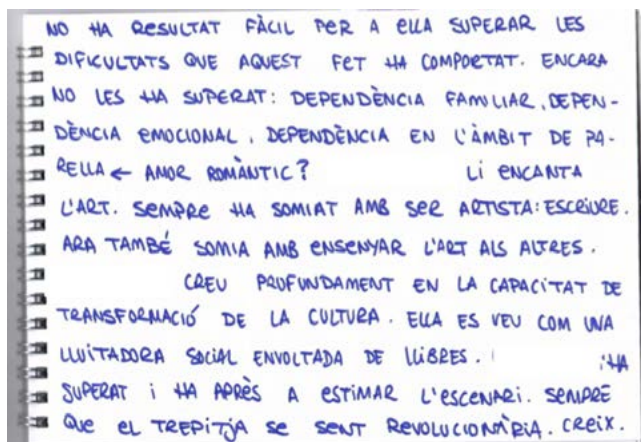 NO HA RESULTAT FÀCIL PER A ELLA SUPERAR LES
DIFICULTATS QUE AQUEST FET HA COMPORTAT. ENCARA
NO LES HA SUPERAT: DEPENDÈNCIA FAMILIAR, DEPEN-
DÈNCIA EMOCIONAL, DEPENDÈNCIA EN L'ÀMBIT DE PA-
RELLA ← AMOR ROMÀNTIC? LI ENCANTA
L'ART. SEMPRE HA SOMIAT AMB SER ARTISTA: ESCRIURE.
ARA TAMBÉ SOMIA AMB ENSENYAR L'ART ALS ALTRES.
CREU PROFUNDAMENT EN LA CAPACITAT DE
TRANSFORMACIÓ DE LA CULTURA. ELLA ES VEU COM UNA
LLUITADORA SOCIAL ENVOLTADA DE LLIBRES. HA
SUPERAT i HA APRÈS A ESTIMAR L'ESCENARI. SEMPRE
QUE EL TREPITJA SE SENT REVOLUCIONÀRIA. CREIX.